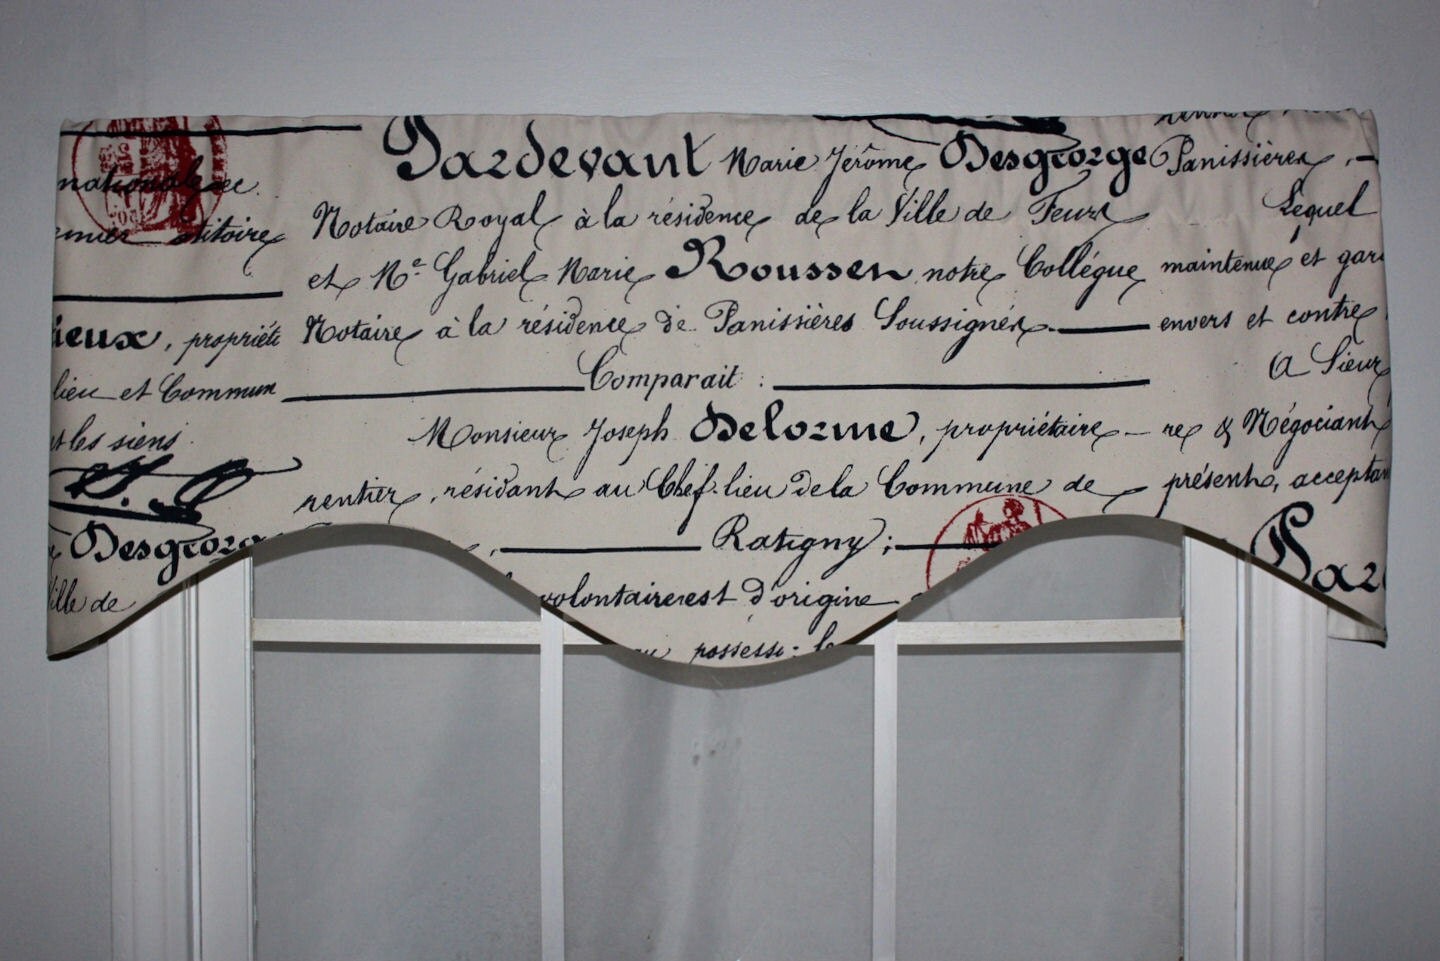 Pardevant Marie Jérôme Desgeorge
Notaire Royal à la résidence de la Ville de Feurs
et Me Gabriel Marie Roussen notre Collégue
Notaire à la résidence de Panissières Soussignés
Comparait :
Monsieur Joseph Delorme, propriétaire
rentier, résidant au Chef-lieu de la Commune de
Ratigny;
volontaire est d'origine
possess
nationale
lieux, propriét
lieu et Commun
et les siens
Desgeorge
Ville de
Panissières,
Lequel
maintenue et gar
envers et contre
A Sieur
re & Négociant
présent, acceptan
Par